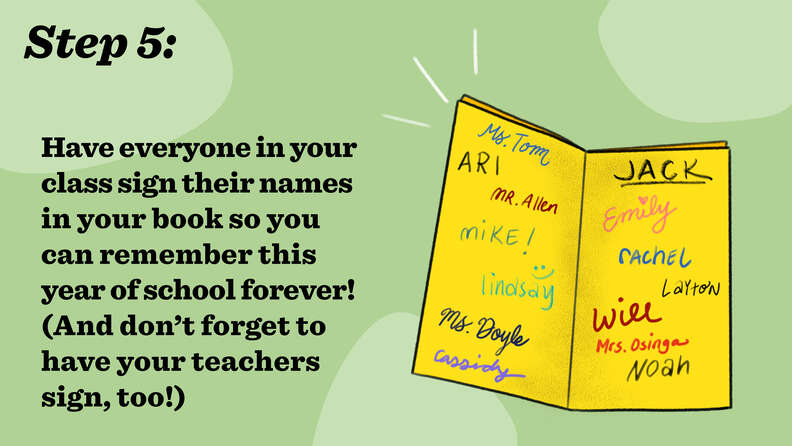 Step 5:
Have everyone in your
class sign their names
in your book so you
can remember this
year of school forever!
(And don’t forget to
have your teachers
sign, too!)
Ms. Tom
ARI
MR. Allen
miKE!
lindsay
Ms. Doyle
Cassidy
JACK
Emily
rACHEL
LAYTON
Will
Mrs. Osinga
NOAH